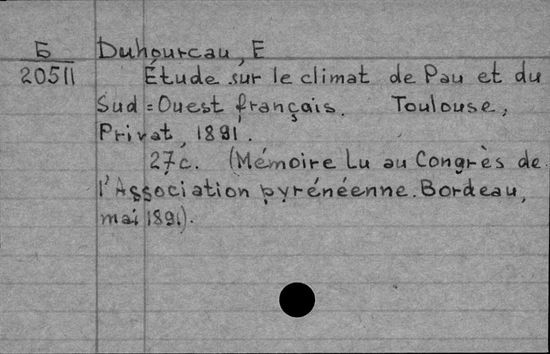 Б Duhourcau, E
20511 Étude sur le climat de Pau et du
Sud=Ouest français. Toulouse,
Privat, 1891.
27c. (Mémoire Lu au Congrès de
l'Association pyrénéenne. Bordeau,
mai 1891).